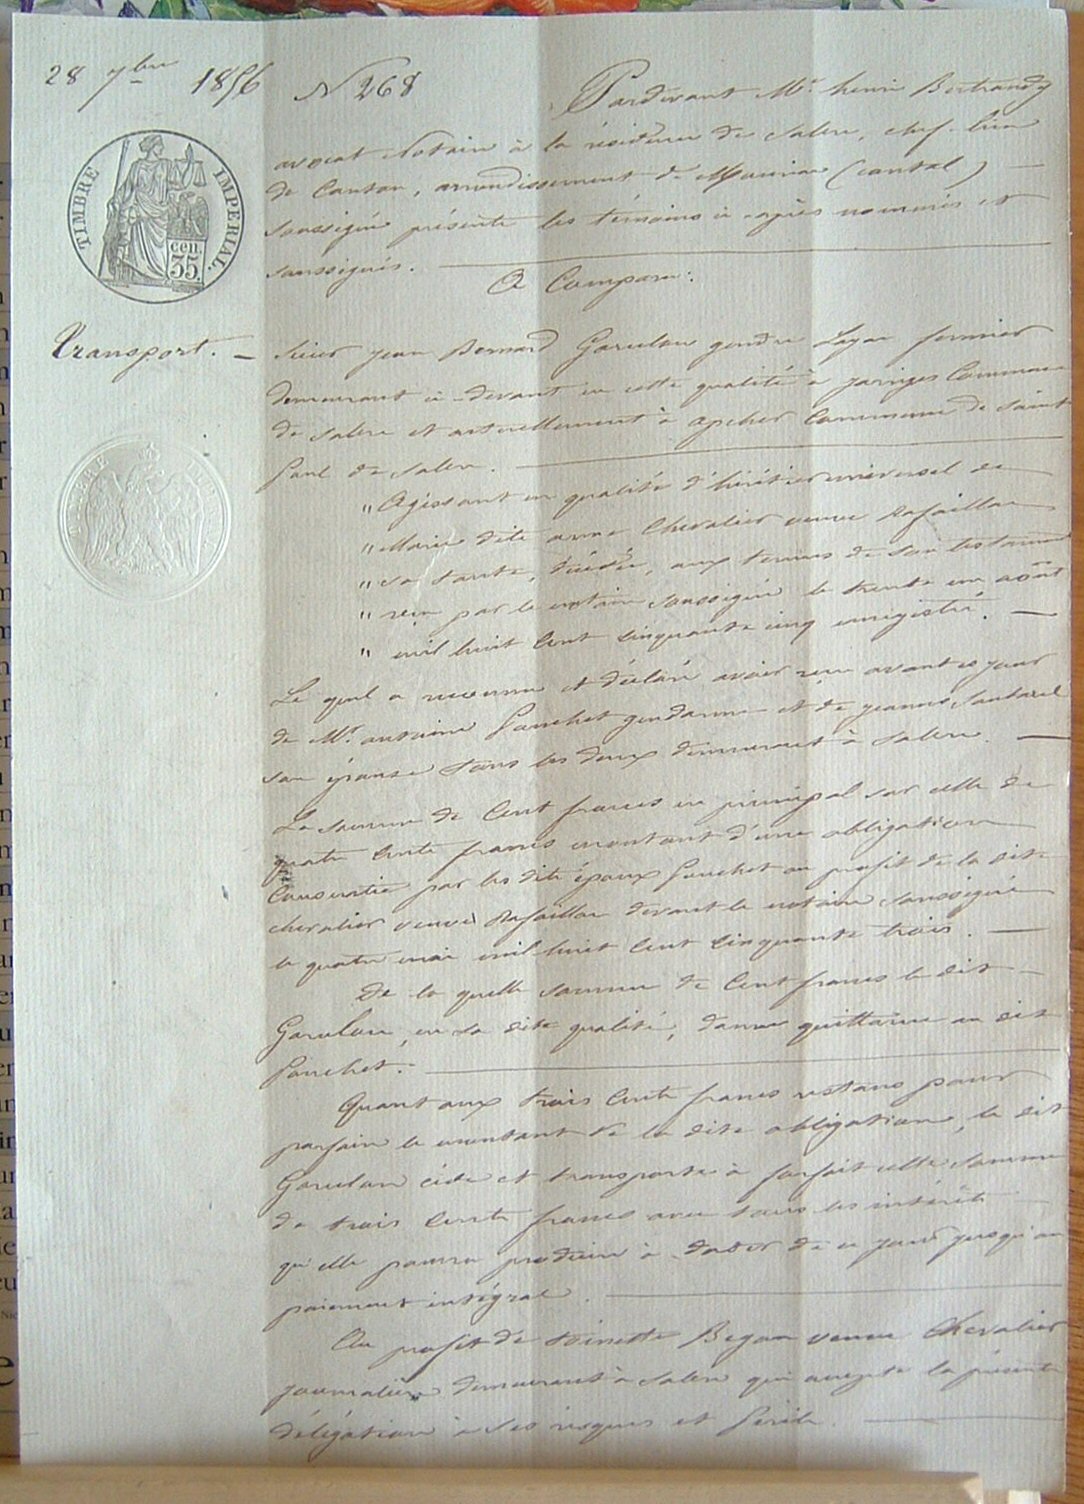 28 7bre 1856 N 268
Pardevant Me henri Bertrandy
avocat Notaire à la résidence de Salers, chef-lieu
de Canton, arrondissement de Mauriac (Cantal)
TIMBRE IMPERIAL.
cen.
35.
soussigné présents les témoins ci-après nommés et
soussignés.
A Comparu:
Transport.
Sieur jean Bernard gendre fermier
demeurant ci-devant en cette qualité à jarriges Commune
de Salers et actuellement à apcher Commune de Saint
Paul de Salers.
" Agissant en qualité d'héritier universel de
" Marie dite anne Chevalier veuve Rafaillac
" sa tante, décédée, aux termes de son testament
" reçu par le notaire soussigné le trente un août
" mil huit Cent Cinquante cinq enregistré.
Le quel a reconnu et déclaré avoir reçu avant ce jour
de Mr. antoine gendarme et de
son épouse tous les deux demeurant à Salers.
La somme de Cent francs en principal sur celle de
quatre Cents francs montant d'une obligation
Consentie par les dits époux au profit de la dite
chevalier veuve Rafaillac devant le notaire soussigné
le quatre mai mil-huit Cent Cinquante trois.
De la quelle somme de Cent francs le dit
en sa dite qualité, donne quittance au dit
Quant aux trois Cents francs restans pour
parfaire le montant de la dite obligation, le dit
cède et transporte à forfait cette somme
de trois Cents francs avec tous les intérêts
qu'elle pourra produire à dater de ce jour jusqu'au
paiement intégral.
Au profit de toinette veuve Chevalier
journalière demeurant à Salers qui accepte la présente
délégation à ses risques et périls.